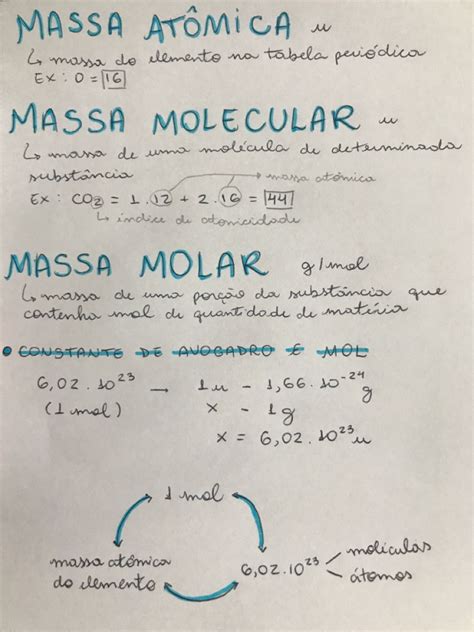 MASSA ATÔMICA u
↳ massa do elemento na tabela periódica
EX: O = 16
MASSA MOLECULAR u
↳ massa de uma molécula de determinada
substância → massa atômica
EX: CO2 = 1.12 + 2.16 = 44
↳ índice de atomicidade
MASSA MOLAR g/mol
↳ massa de uma porção da substância que
contenha mol de quantidade de matéria
• CONSTANTE DE AVOGADRO E MOL
6,02.10²³ — 1u - 1,66.10⁻²⁴ g
(1 mol) x - 1g
x = 6,02.10²³u
1 mol
massa atômica
do elemento
6,02.10²³ — moléculas
— átomos